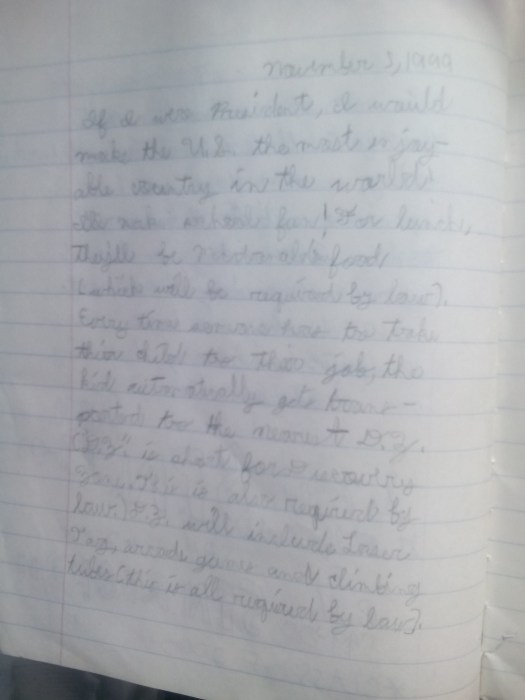 November 3, 1999
If I were President, I would
make the U.S. the most enjoy-
able country in the world
fun! For lunch,
They'll be McDonald's food
(which will be required by law).
Every time someone has to take
thier child to thier job, the
kid automatically gets trans-
ported to the nearest D.Z.
("D.Z." is short for Discovery
Zone. This is also required by
law) D.Z. will include Laser
Tag, arcade games and climbing
tubes (this is all required by law).